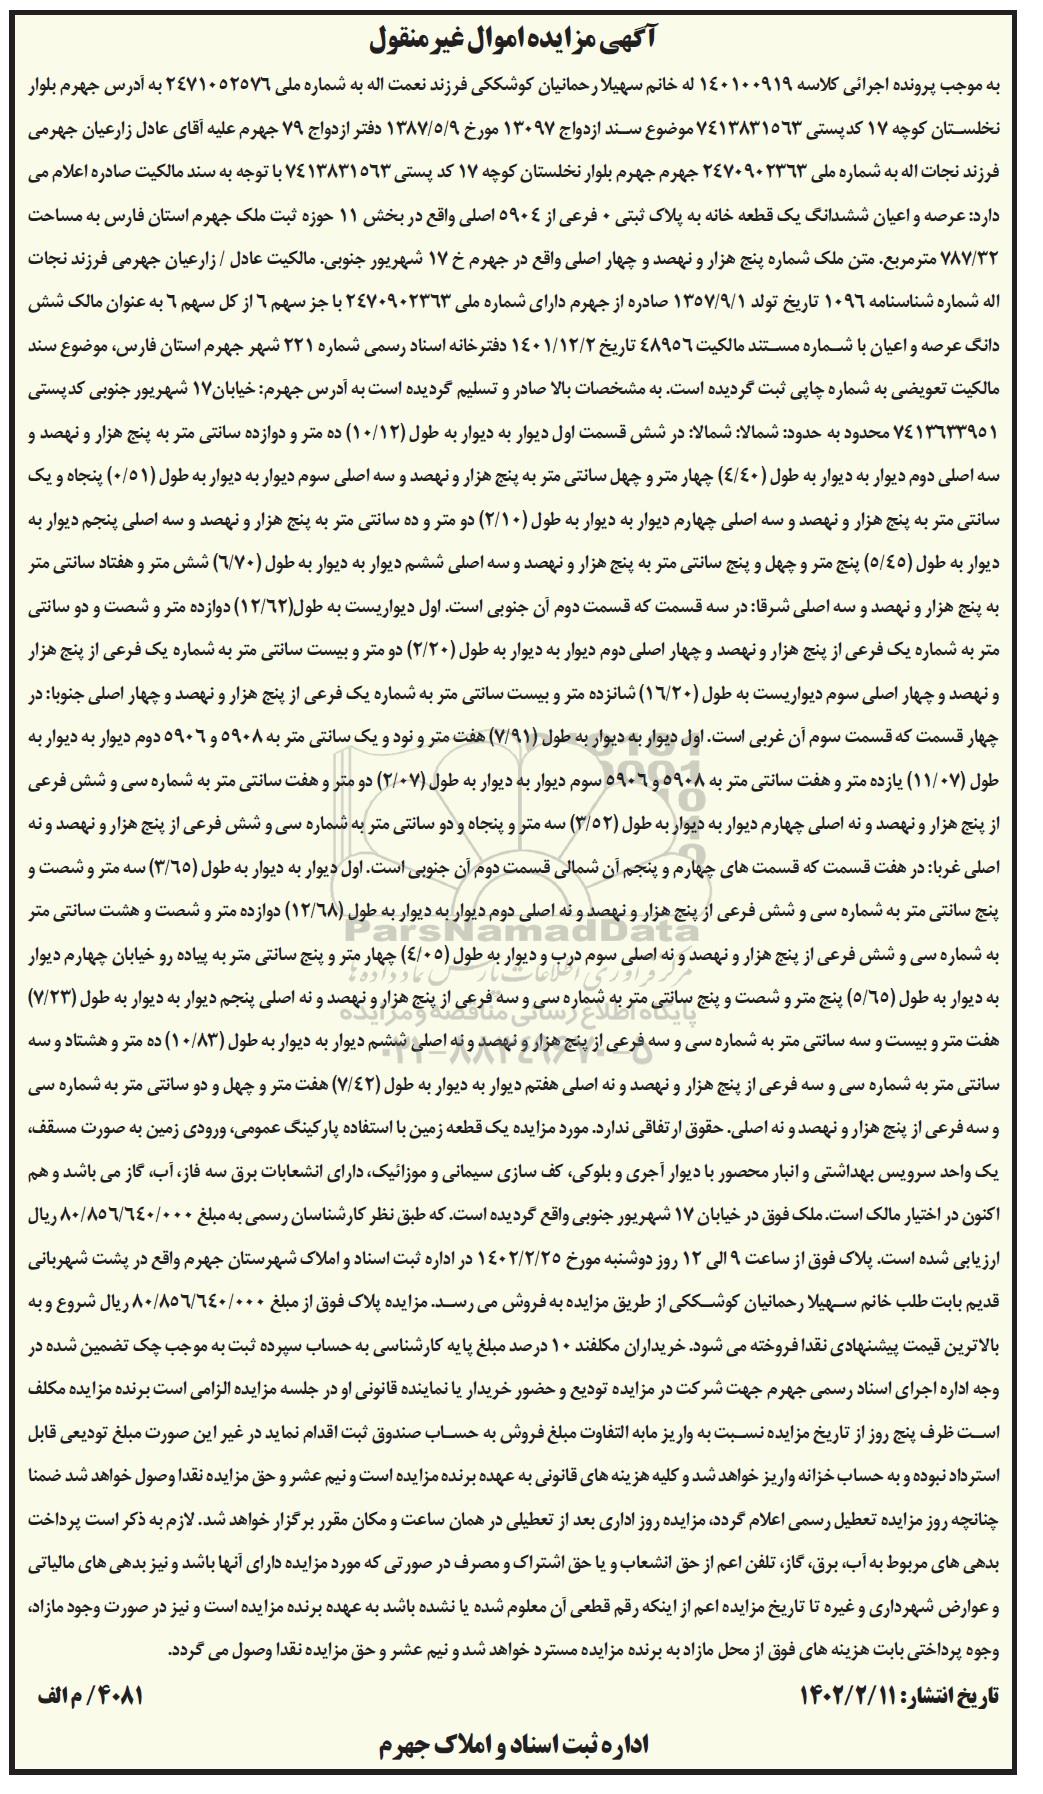 آگهی مزایده اموال غیر منقول
به موجب پرونده اجرائی کلاسه ۱۴۰۱۰۰۹۱۹ له خانم سهیلا رحمانیان کوشککی فرزند نعمت اله به شماره ملی ۲۴۷۱۰۵۲۵۷۶ به آدرس جهرم بلوار
نخلستان کوچه ۱۷ کدپستی ۷۴۱۳۸۳۱۵۶۳ موضوع سند ازدواج ۱۳۰۹۷ مورخ ۱۳۸۷/۵/۹ دفتر ازدواج ۷۹ جهرم علیه آقای عادل زارعیان جهرمی
فرزند نجات اله به شماره ملی ۲۴۷۰۹۰۲۳۶۳ جهرم جهرم بلوار نخلستان کوچه ۱۷ کد پستی ۷۴۱۳۸۳۱۵۶۳ با توجه به سند مالکیت صادره اعلام می
دارد: عرصه و اعیان ششدانگ یک قطعه خانه به پلاک ثبتی ۰ فرعی از ۵۹۰۴ اصلی واقع در بخش ۱۱ حوزه ثبت ملک جهرم استان فارس به مساحت
۷۸۷/۳۲ مترمربع. متن ملک شماره پنج هزار و نهصد و چهار اصلی واقع در جهرم خ ۱۷ شهریور جنوبی. مالکیت عادل / زارعیان جهرمی فرزند نجات
اله شماره شناسنامه ۱۰۹۶ تاریخ تولد ۱۳۵۷/۹/۱ صادره از جهرم دارای شماره ملی ۲۴۷۰۹۰۲۳۶۳ با جز سهم ۶ از کل سهم ۶ به عنوان مالک شش
دانگ عرصه و اعیان با شماره مستند مالکیت ۴۸۹۵۶ تاریخ ۱۴۰۱/۱۲/۲ دفترخانه اسناد رسمی شماره ۲۲۱ شهر جهرم استان فارس، موضوع سند
مالکیت تعویضی به شماره چاپی ثبت گردیده است. به مشخصات بالا صادر و تسلیم گردیده است به آدرس جهرم: خیابان۱۷ شهریور جنوبی کدپستی
۷۴۱۳۶۳۳۹۵۱ محدود به حدود: شمالا: شمالا: در شش قسمت اول دیوار به دیوار به طول (۱۰/۱۲) ده متر و دوازده سانتی متر به پنج هزار و نهصد و
سه اصلی دوم دیوار به دیوار به طول (۴/۴۰) چهار متر و چهل سانتی متر به پنج هزار و نهصد و سه اصلی سوم دیوار به دیوار به طول (۰/۵۱) پنجاه و یک
سانتی متر به پنج هزار و نهصد و سه اصلی چهارم دیوار به دیوار به طول (۲/۱۰) دو متر و ده سانتی متر به پنج هزار و نهصد و سه اصلی پنجم دیوار به
دیوار به طول (۵/۴۵) پنج متر و چهل و پنج سانتی متر به پنج هزار و نهصد و سه اصلی ششم دیوار به دیوار به طول (۶/۷۰) شش متر و هفتاد سانتی متر
به پنج هزار و نهصد و سه اصلی شرقا: در سه قسمت که قسمت دوم آن جنوبی است. اول دیواریست به طول(۱۲/۶۲) دوازده متر و شصت و دو سانتی
متر به شماره یک فرعی از پنج هزار و نهصد و چهار اصلی دوم دیوار به دیوار به طول (۲/۲۰) دو متر و بیست سانتی متر به شماره یک فرعی از پنج هزار
و نهصد و چهار اصلی سوم دیواریست به طول (۱۶/۲۰) شانزده متر و بیست سانتی متر به شماره یک فرعی از پنج هزار و نهصد و چهار اصلی جنوبا: در
چهار قسمت که قسمت سوم آن غربی است. اول دیوار به دیوار به طول (۷/۹۱) هفت متر و نود و یک سانتی متر به ۵۹۰۸ و ۵۹۰۶ دوم دیوار به دیوار به
طول (۱۱/۰۷) یازده متر و هفت سانتی متر به ۵۹۰۸ و ۵۹۰۶ سوم دیوار به دیوار به طول (۲/۰۷) دو متر و هفت سانتی متر به شماره سی و شش فرعی
از پنج هزار و نهصد و نه اصلی چهارم دیوار به دیوار به طول (۳/۵۲) سه متر و پنجاه و دو سانتی متر به شماره سی و شش فرعی از پنج هزار و نهصد و نه
اصلی غربا: در هفت قسمت که قسمت های چهارم و پنجم آن شمالی قسمت دوم آن جنوبی است. اول دیوار به دیوار به طول (۳/۶۵) سه متر و شصت و
پنج سانتی متر به شماره سی و شش فرعی از پنج هزار و نهصد و نه اصلی دوم دیوار به دیوار به طول (۱۲/۶۸) دوازده متر و شصت و هشت سانتی متر
به شماره سی و شش فرعی از پنج هزار و نهصد و نه اصلی سوم درب و دیوار به طول (۴/۰۵) چهار متر و پنج سانتی متر به پیاده رو خیابان چهارم دیوار
به دیوار به طول (۵/۶۵) پنج متر و شصت و پنج سانتی متر به شماره سی و سه فرعی از پنج هزار و نهصد و نه اصلی پنجم دیوار به دیوار به طول (۷/۲۳)
هفت متر و بیست و سه سانتی متر به شماره سی و سه فرعی از پنج هزار و نهصد و نه اصلی ششم دیوار به دیوار به طول (۱۰/۸۳) ده متر و هشتاد و سه
سانتی متر به شماره سی و سه فرعی از پنج هزار و نهصد و نه اصلی هفتم دیوار به دیوار به طول (۷/۴۲) هفت متر و چهل و دو سانتی متر به شماره سی
و سه فرعی از پنج هزار و نهصد و نه اصلی. حقوق ارتفاقی ندارد. مورد مزایده یک قطعه زمین با استفاده پارکینگ عمومی، ورودی زمین به صورت مسقف،
یک واحد سرویس بهداشتی و انبار محصور با دیوار آجری و بلوکی، کف سازی سیمانی و موزائیک، دارای انشعابات برق سه فاز، آب، گاز می باشد و هم
اکنون در اختیار مالک است. ملک فوق در خیابان ۱۷ شهریور جنوبی واقع گردیده است. که طبق نظر کارشناسان رسمی به مبلغ ۸۰/۸۵۶/۶۴۰/۰۰۰ ریال
ارزیابی شده است. پلاک فوق از ساعت ۹ الی ۱۲ روز دوشنبه مورخ ۱۴۰۲/۲/۲۵ در اداره ثبت اسناد و املاک شهرستان جهرم واقع در پشت شهربانی
قدیم بابت طلب خانم سهیلا رحمانیان کوشککی از طریق مزایده به فروش می رسد. مزایده پلاک فوق از مبلغ ۸۰/۸۵۶/۶۴۰/۰۰۰ ریال شروع و به
بالاترین قیمت پیشنهادی نقدا فروخته می شود. خریداران مکلفند ۱۰ درصد مبلغ پایه کارشناسی به حساب سپرده ثبت به موجب چک تضمین شده در
وجه اداره اجرای اسناد رسمی جهرم جهت شرکت در مزایده تودیع و حضور خریدار یا نماینده قانونی او در جلسه مزایده الزامی است برنده مزایده مکلف
است ظرف پنج روز از تاریخ مزایده نسبت به واریز مابه التفاوت مبلغ فروش به حساب صندوق ثبت اقدام نماید در غیر این صورت مبلغ تودیعی قابل
استرداد نبوده و به حساب خزانه واریز خواهد شد و کلیه هزینه های قانونی به عهده برنده مزایده است و نیم عشر و حق مزایده نقدا وصول خواهد شد ضمنا
چنانچه روز مزایده تعطیل رسمی اعلام گردد، مزایده روز اداری بعد از تعطیلی در همان ساعت و مکان مقرر برگزار خواهد شد. لازم به ذکر است پرداخت
بدهی های مربوط به آب، برق، گاز، تلفن اعم از حق انشعاب و یا حق اشتراک و مصرف در صورتی که مورد مزایده دارای آنها باشد و نیز بدهی های مالیاتی
و عوارض شهرداری و غیره تا تاریخ مزایده اعم از اینکه رقم قطعی آن معلوم شده یا نشده باشد به عهده برنده مزایده است و نیز در صورت وجود مازاد،
وجوه پرداختی بابت هزینه های فوق از محل مازاد به برنده مزایده مسترد خواهد شد و نیم عشر و حق مزایده نقدا وصول می گردد.
تاریخ انتشار: ۱۴۰۲/۲/۱۱
۴۰۸۱/ م الف
اداره ثبت اسناد و املاک جهرم
ParsNamadData
پایگاه اطلاع رسانی مناقصه و مزایده
۰۲۱-۸۸۳۴۹۶۷۰-۵